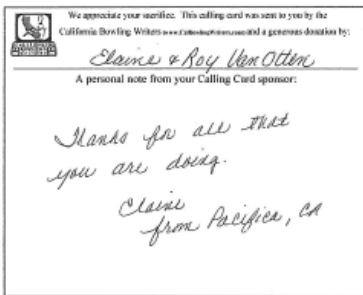 We appreciate your sacrifice. This calling card was sent to you by the
California Bowling Writers www.CalBowlingWriters.com and a generous donation by:
Elaine & Roy Van Otten
A personal note from your Calling Card sponsor:
Thanks for all that
you are doing.
Elaine
from Pacifica, CA